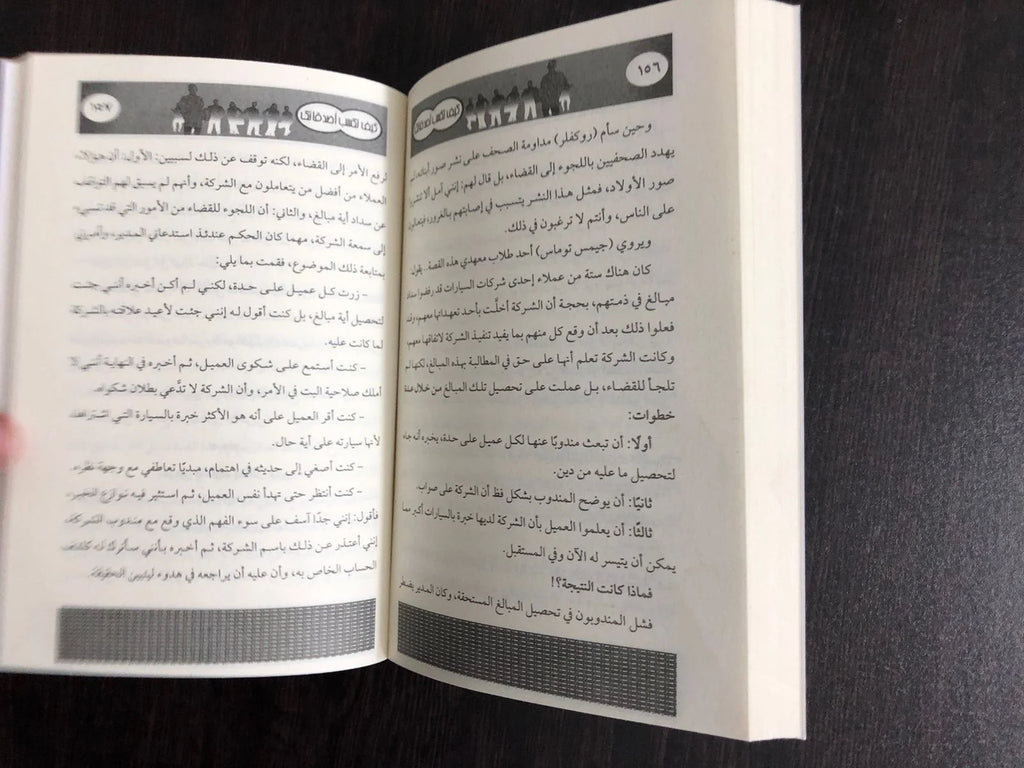 ١٥٦
كيف تكسب أصدقائك
وحين سأم (روكفلر) مداومة الصحف على نشر صور أبنائه، لم
يهدد الصحفيين باللجوء إلى القضاء، بل قال لهم: إنني آمل ألا تنشروا
صور الأولاد، فمثل هذا النشر يتسبب في إصابتهم بالغرور،
على الناس، وأنتم لا ترغبون في ذلك.
ويروي (جيمس توماس) أحد طلاب معهدي هذه القصة.. يقول:
كان هناك ستة من عملاء إحدى شركات السيارات قد رفضوا سداد
مبالغ في ذمتهم، بحجة أن الشركة أخلَّت بأحد تعهداتها معهم، وقد
فعلوا ذلك بعد أن وقع كل منهم بما يفيد تنفيذ الشركة لاتفاقها معهم،
وكانت الشركة تعلم أنها على حق في المطالبة بهذه المبالغ، لكنها لم
تلجأ للقضاء، بل عملت على تحصيل تلك المبالغ من خلال عدة
خطوات:
أولًا: أن تبعث مندوبًا عنها لكل عميل على حدة، يخبره أنه جاء
لتحصيل ما عليه من دين.
ثانيًا: أن يوضح المندوب بشكل فظ أن الشركة على صواب.
ثالثًا: أن يعلموا العميل بأن الشركة لديها خبرة بالسيارات أكبر مما
يمكن أن يتيسر له الآن وفي المستقبل.
فماذا كانت النتيجة؟!
فشل المندوبون في تحصيل المبالغ المستحقة، وكان المدير يضطر
١٥٧
كيف تكسب أصدقائك
لرفع الأمر إلى القضاء، لكنه توقف عن ذلك لسببين: الأول: أن هؤلاء
العملاء من أفضل من يتعاملون مع الشركة، وأنهم لم يسبق لهم التوقف
عن سداد أية مبالغ، والثاني: أن اللجوء للقضاء من الأمور التي قد تسيء
إلى سمعة الشركة، مهما كان الحكم عندئذ استدعاني المدير، وأمرني
بمتابعة ذلك الموضوع، فقمت بما يلي:
- زرت كل عميل على حدة، لكنني لم أكن أخبره أنني جئت
لتحصيل أية مبالغ، بل كنت أقول له إنني جئت لأعيد علاقته بالشركة
لما كانت عليه.
- كنت أستمع على شكوى العميل، ثم أخبره في النهاية أنني لا
أملك صلاحية البت في الأمر، وأن الشركة لا تدَّعي بطلان شكواه.
- كنت أقر العميل على أنه هو الأكثر خبرة بالسيارة التي اشتراها؛
لأنها سيارته على أية حال.
- كنت أصغي إلى حديثه في اهتمام، مبديًا تعاطفي مع وجهة نظره.
- كنت أنتظر حتى تهدأ نفس العميل، ثم أستثير فيه نوازع الخير،
فأقول: إنني جدًا آسف على سوء الفهم الذي وقع مع مندوب الشركة
إنني أعتذر عن ذلك باسم الشركة، ثم أخبره بأنني سأترك له كشف
الحساب الخاص به، وأن عليه أن يراجعه في هدوء ليتبين الحقيقة.